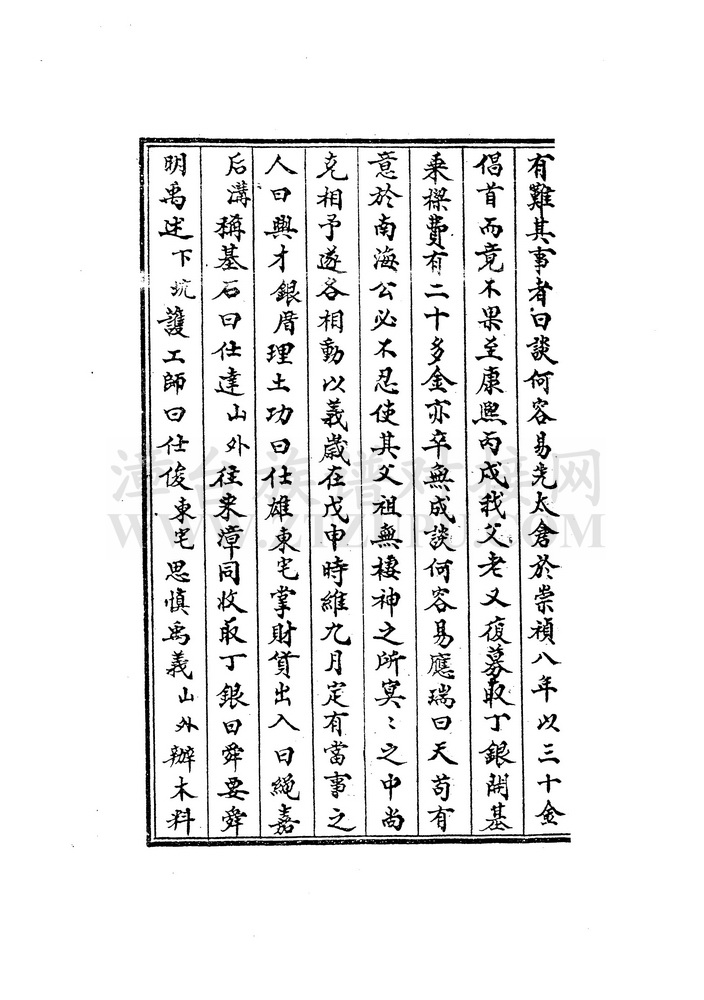 有難其事者曰談何容易先太倉於崇禎八年以三十金
倡首而竟不果至康熙丙戌我父老又復募取丁銀開基
乗樑費有二十多金亦卒無成談何容易應瑞曰天苟有
意於南海公必不忍使其父祖無棲神之所冥〻之中尚
克相予遂各相動以義歲在戊申時維九月定有當事之
人曰興才銀厝理土功曰仕雄東宅掌財貨出入曰繩嘉
后溝稱基石曰仕達山外往来漳同收取丁銀曰舜要舜
明禹述下坑護工師曰仕俊東宅思慎禹義山外辦木料
漳台族譜对接网
WWW.ZTZUPU.COM